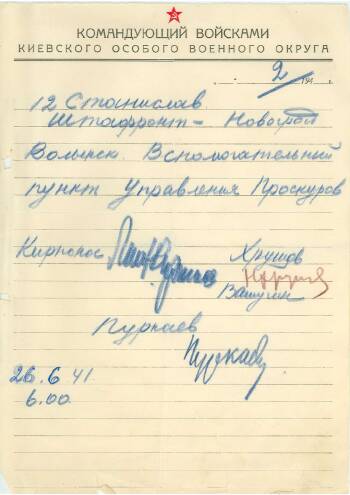 КОМАНДУЮЩИЙ ВОЙСКАМИ
КИЕВСКОГО ОСОБОГО ВОЕННОГО ОКРУГА
2
12 Станислав
Штафронт – Новоград
Волынск. Вспомогательный
пункт Управления Проскуров
Кирпонос Хрущов
Вашугин
Пуркаев
Пуркаев
26.6.41
6.00